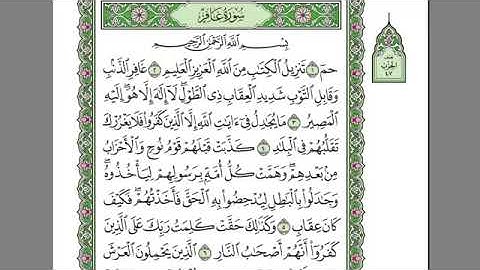 سُورَةُ غَافِرٍ
بِسْمِ ٱللَّهِ ٱلرَّحْمَٰنِ ٱلرَّحِيمِ
حمٓ ١ تَنزِيلُ ٱلْكِتَٰبِ مِنَ ٱللَّهِ ٱلْعَزِيزِ ٱلْعَلِيمِ ٢ غَافِرِ ٱلذَّنۢبِ
وَقَابِلِ ٱلتَّوْبِ شَدِيدِ ٱلْعِقَابِ ذِى ٱلطَّوْلِ لَآ إِلَٰهَ إِلَّا هُوَ إِلَيْهِ
ٱلْمَصِيرُ ٣ مَا يُجَٰدِلُ فِىٓ ءَايَٰتِ ٱللَّهِ إِلَّا ٱلَّذِينَ كَفَرُوا۟ فَلَا يَغْرُرْكَ
تَقَلُّبُهُمْ فِى ٱلْبِلَٰدِ ٤ كَذَّبَتْ قَبْلَهُمْ قَوْمُ نُوحٍ وَٱلْأَحْزَابُ
مِنۢ بَعْدِهِمْ وَهَمَّتْ كُلُّ أُمَّةٍۭ بِرَسُولِهِمْ لِيَأْخُذُوهُ
وَجَٰدَلُوا۟ بِٱلْبَٰطِلِ لِيُدْحِضُوا۟ بِهِ ٱلْحَقَّ فَأَخَذْتُهُمْ فَكَيْفَ
كَانَ عِقَابِ ٥ وَكَذَٰلِكَ حَقَّتْ كَلِمَتُ رَبِّكَ عَلَى ٱلَّذِينَ
كَفَرُوٓا۟ أَنَّهُمْ أَصْحَٰبُ ٱلنَّارِ ٦ ٱلَّذِينَ يَحْمِلُونَ ٱلْعَرْشَ
نصف
الحزب
٤٧